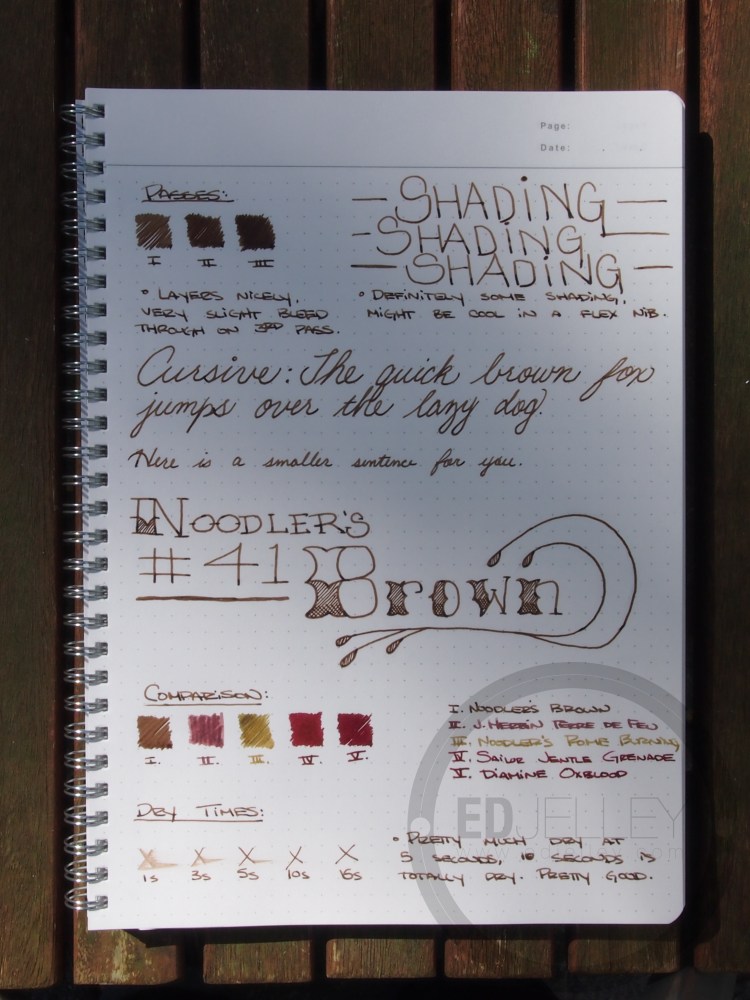 Page:
Date:
PASSES:
I II III
° LAYERS NICELY,
VERY SLIGHT BLEED
THROUGH ON 3RD PASS.
— SHADING —
- SHADING —
— SHADING —
° DEFINITELY SOME SHADING,
MIGHT BE COOL IN A FLEX NIB.
Cursive: The quick brown fox
jumps over the lazy dog.
Here is a smaller sentence for you.
NOODLER'S
#41 Brown
COMPARISON:
I. II. III. IV. V.
I. NOODLER'S BROWN
II. J. HERBIN TERRE DE FEU
III. NOODLER'S ROME BURNING
IV. SAILOR JENTLE GRENADE
V. DIAMINE OXBLOOD
DRY TIMES:
X X X X X
1s 3s 5s 10s 15s
° PRETTY MUCH DRY AT
5 SECONDS, 10 SECONDS IS
TOTALLY DRY. PRETTY GOOD.
ED JELLEY